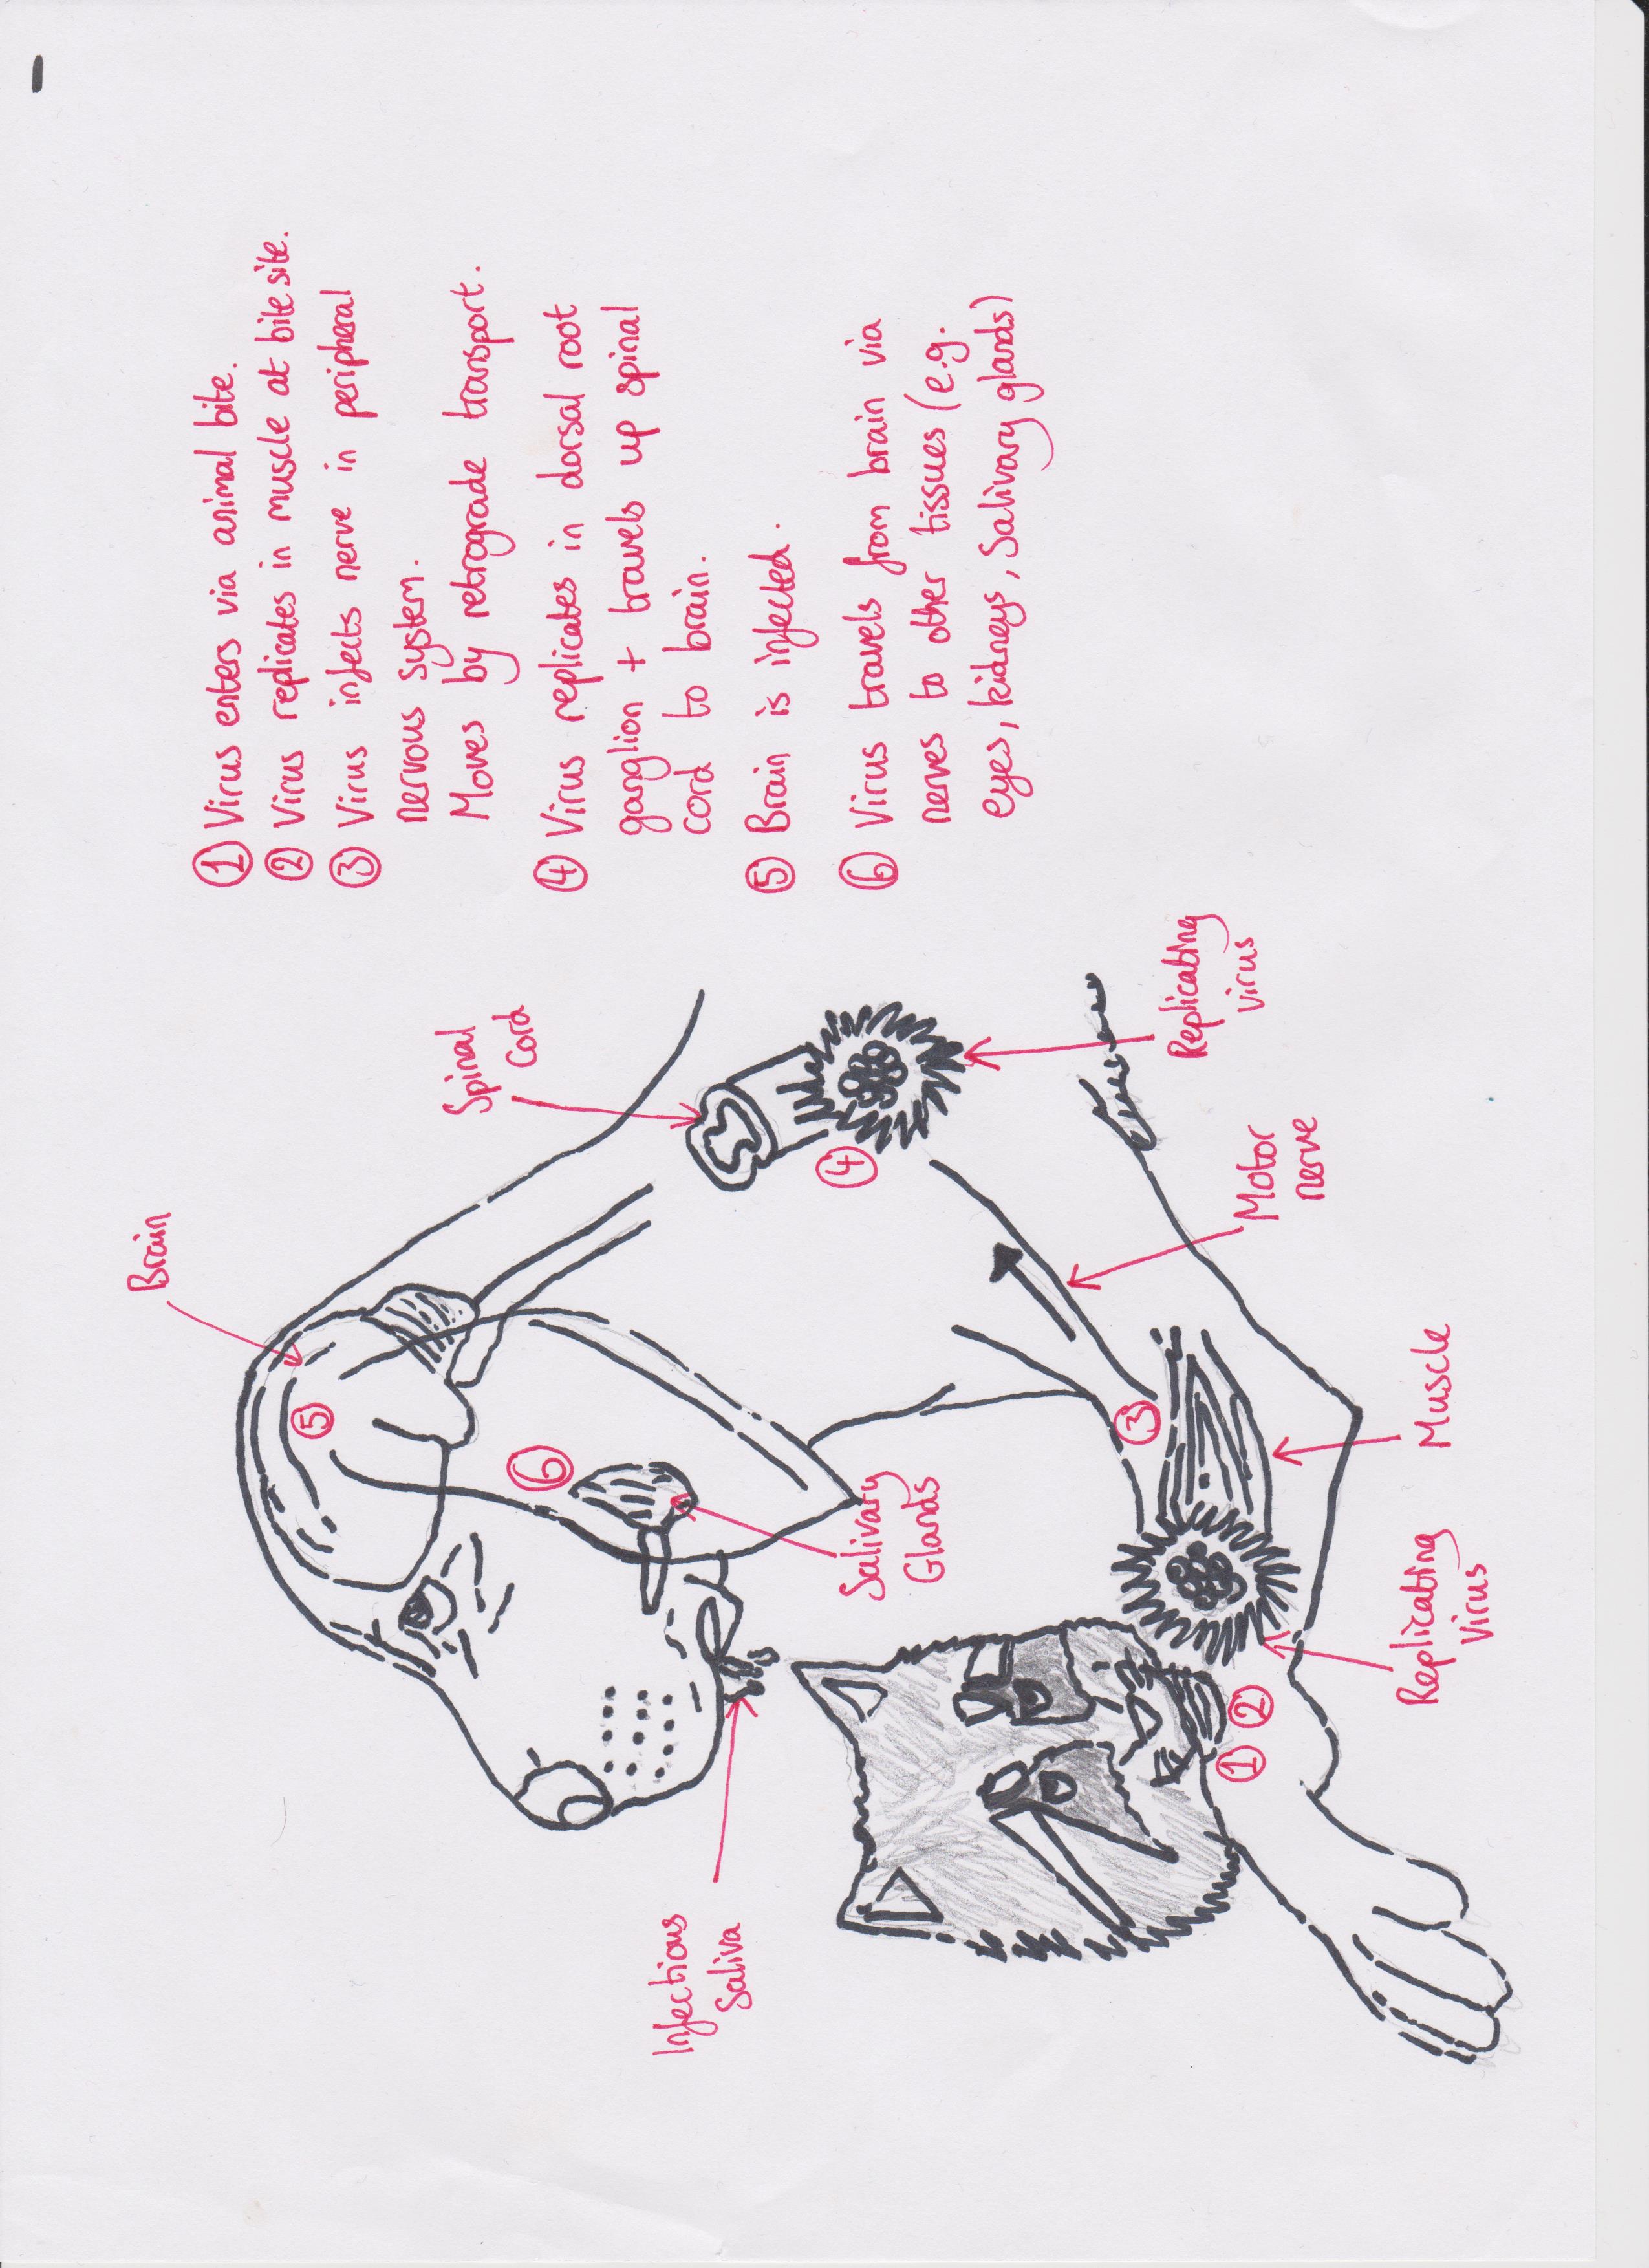 Brain
Spinal
Cord
⑤
⑥
④
Salivary
Glands
Infectious
Saliva
③
Replicating
virus
Motor
nerve
① ②
Muscle
Replicating
Virus
① Virus enters via animal bite.
② Virus replicates in muscle at bite site.
③ Virus infects nerve in peripheral
nervous system.
Moves by retrograde transport.
④ Virus replicates in dorsal root
ganglion + travels up spinal
cord to brain.
⑤ Brain is infected.
⑥ Virus travels from brain via
nerves to other tissues (e.g.
eyes, kidneys, Salivary glands)
1